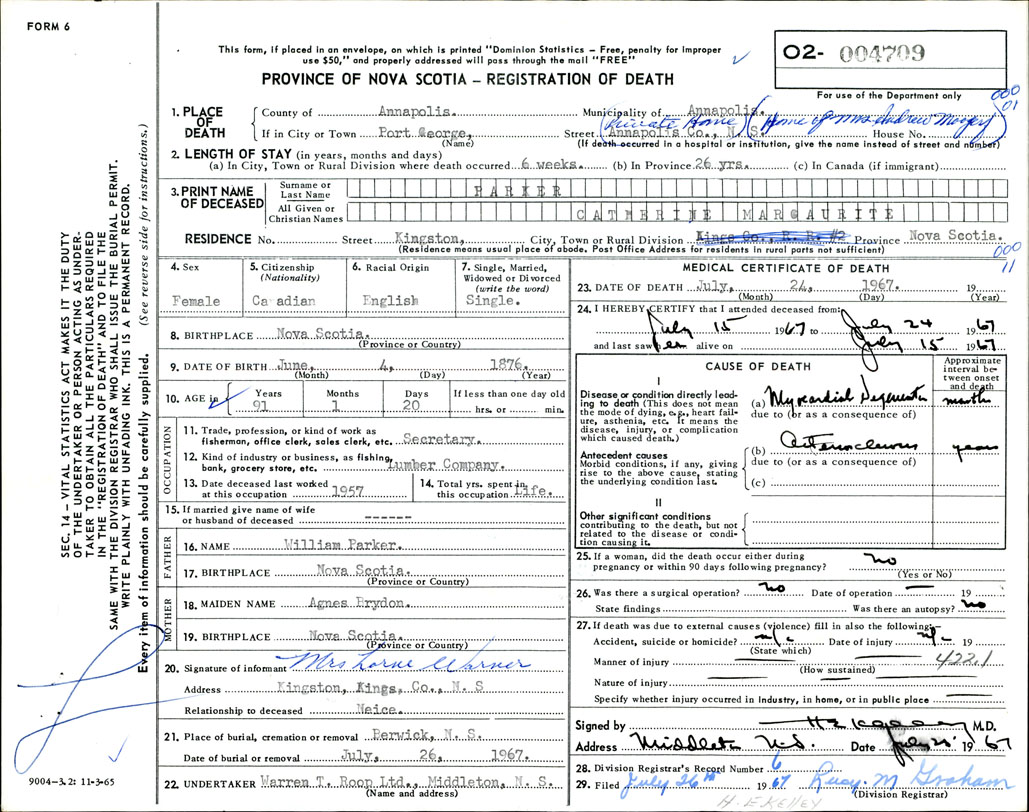 FORM 6
This form, if placed in an envelope, on which is printed "Dominion Statistics – Free, penalty for improper
use $50," and properly addressed will pass through the mail "FREE"
PROVINCE OF NOVA SCOTIA – REGISTRATION OF DEATH
02- 004709
For use of the Department only
000
01
1. PLACE OF DEATH
County of Annapolis. Municipality of Annapolis.
(Private Home) (Home of Mrs Andrew Mosher)
If in City or Town Port George, Street Annapolis Co., N. S. House No.
(Name) (If death occurred in a hospital or institution, give the name instead of street and number)
2. LENGTH OF STAY (in years, months and days)
(a) In City, Town or Rural Division where death occurred 6 weeks. (b) In Province 26 yrs. (c) In Canada (if immigrant)
3. PRINT NAME OF DECEASED
Surname or Last Name PARKER
All Given or Christian Names CATHERINE MARGAURITE
RESIDENCE No. Street Kingston, City, Town or Rural Division Kings Co., R. R. #2 Province Nova Scotia.
(Residence means usual place of abode. Post Office Address for residents in rural parts not sufficient)
000
11
4. Sex
Female
5. Citizenship
(Nationality)
Canadian
6. Racial Origin
English
7. Single, Married,
Widowed or Divorced
(write the word)
Single.
8. BIRTHPLACE Nova Scotia.
(Province or Country)
9. DATE OF BIRTH June, 4, 1876.
(Month) (Day) (Year)
10. AGE in Years Months Days If less than one day old
91 1 20 hrs. or min.
OCCUPATION
11. Trade, profession, or kind of work as
fisherman, office clerk, sales clerk, etc. Secretary.
12. Kind of industry or business, as fishing,
bank, grocery store, etc. Lumber Company.
13. Date deceased last worked
at this occupation 1957
14. Total yrs. spent in
this occupation Life.
15. If married give name of wife
or husband of deceased ------
FATHER
16. NAME William Parker.
17. BIRTHPLACE Nova Scotia.
(Province or Country)
MOTHER
18. MAIDEN NAME Agnes Brydon.
19. BIRTHPLACE Nova Scotia.
(Province or Country)
20. Signature of informant Mrs Lorne Warner
Address Kingston, Kings, Co., N. S
Relationship to deceased Neice.
21. Place of burial, cremation or removal Berwick, N. S.
Date of burial or removal July, 26, 1967.
22. UNDERTAKER Warren T. Roop Ltd., Middleton, N. S.
(Name and address)
MEDICAL CERTIFICATE OF DEATH
23. DATE OF DEATH July, 24, 1967. 19
(Month) (Day) (Year)
24. I HEREBY CERTIFY that I attended deceased from:
July 15 1967 to July 24 1967
and last saw her alive on July 15 1967.
CAUSE OF DEATH
Approximate interval between onset and death
I
Disease or condition directly leading to death (This does not mean
the mode of dying, e.g., heart failure, asthenia, etc. It means the
disease, injury, or complication
which caused death.)
(a) Myocardial Degeneration months
due to (or as a consequence of)
Antecedent causes
Morbid conditions, if any, giving
rise to the above cause, stating
the underlying condition last.
(b) years
due to (or as a consequence of)
(c)
II
Other significant conditions
contributing to the death, but not
related to the disease or condition causing it.
25. If a woman, did the death occur either during
pregnancy or within 90 days following pregnancy? no
(Yes or No)
26. Was there a surgical operation? no Date of operation — 19
State findings Was there an autopsy? no
27. If death was due to external causes (violence) fill in also the following:
Accident, suicide or homicide? n/c Date of injury n/c 19
(State which)
Manner of injury 4221
(How sustained)
Nature of injury
Specify whether injury occurred in industry, in home, or in public place
Signed by M.D.
Address Middleton N.S. Date July 25 1967
28. Division Registrar's Record Number 6
29. Filed July 26th 1967 Lucy. M Graham
(Division Registrar)
H.E.KELLEY
SEC. 14 – VITAL STATISTICS ACT MAKES IT THE DUTY
OF THE UNDERTAKER OR PERSON ACTING AS UNDERTAKER TO OBTAIN ALL THE PARTICULARS REQUIRED
IN THE "REGISTRATION OF DEATH" AND TO FILE THE
SAME WITH THE DIVISION REGISTRAR WHO SHALL ISSUE THE BURIAL PERMIT.
WRITE PLAINLY WITH UNFADING INK. THIS IS A PERMANENT RECORD.
Every item of information should be carefully supplied. (See reverse side for instructions.)
9004–3.2: 11-3-65